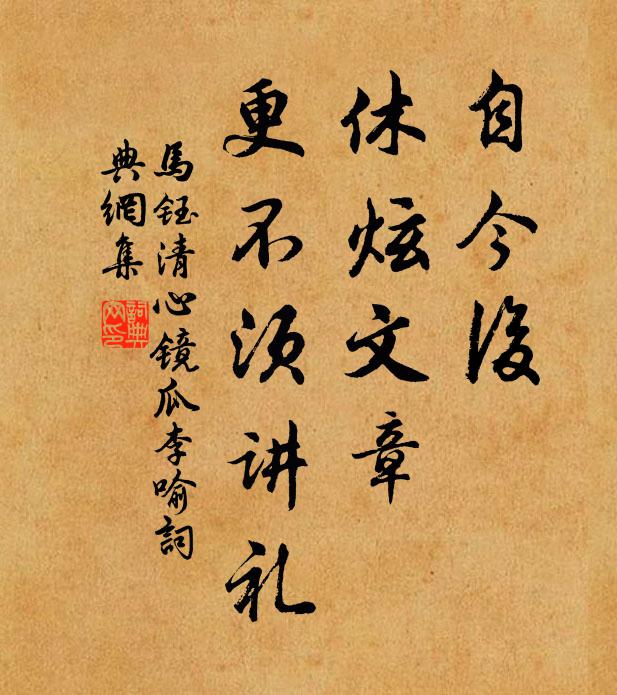 自今後
休炫文章
更不须讲礼
馬钰清心镜瓜李喻詞
典網集
詞典
网印